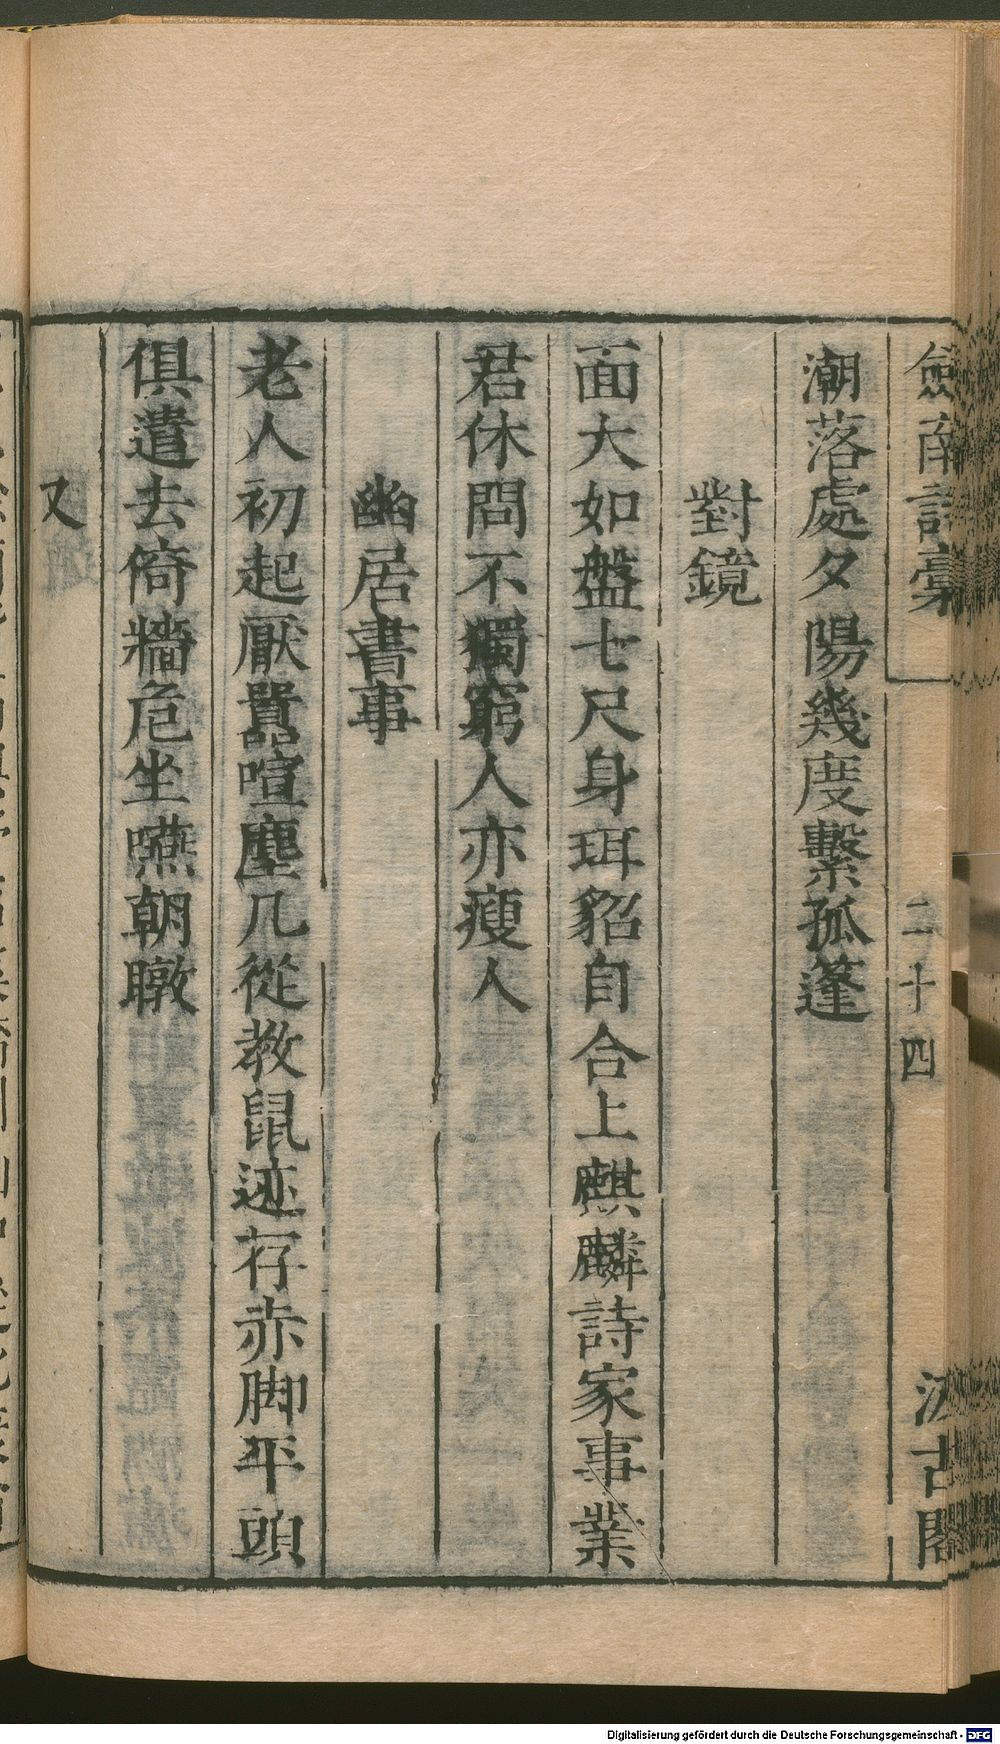 劍南詩藳 二十四 汲古閣
潮落處夕陽幾度繫孤篷
對鏡
面大如盤七尺身珥貂自合上麒麟詩家事業
君休問不獨窮人亦瘦人
幽居書事
老人初起厭囂喧塵几從教鼠迹存赤脚平頭
俱遣去倚牆危坐嚥朝暾
又
Digitalisierung gefördert durch die Deutsche Forschungsgemeinschaft - DFG